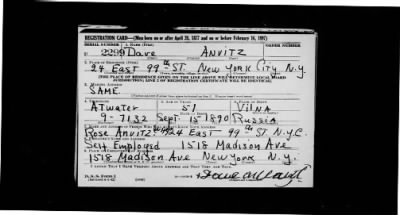 REGISTRATION CARD—(Men born on or after April 28, 1877 and on or before February 16, 1897)
SERIAL NUMBER 1. NAME (Print) ORDER NUMBER
2299 Dave ANVITZ
2. PLACE OF RESIDENCE (Print)
24 EAST 99th ST. NEW YORK CITY N.Y.
[THE PLACE OF RESIDENCE GIVEN ON THE LINE ABOVE WILL DETERMINE LOCAL BOARD
JURISDICTION; LINE 2 OF REGISTRATION CERTIFICATE WILL BE IDENTICAL]
3. MAILING ADDRESS
SAME
4. TELEPHONE 5. AGE IN YEARS 6. PLACE OF BIRTH
ATwater 51 VilNA
9-7132 Sept 15 1890 Russia
7. NAME AND ADDRESS OF PERSON WHO WILL ALWAYS KNOW YOUR ADDRESS
Rose ANVITZ 24 EAST 99th ST N.Y.C.
8. EMPLOYER'S NAME AND ADDRESS
Self Employed 1518 Madison Ave
9. PLACE OF EMPLOYMENT OR BUSINESS
1518 Madison Ave New York N.Y.
I AFFIRM THAT I HAVE VERIFIED ABOVE ANSWERS AND THAT THEY ARE TRUE.
D. S. S. Form 1